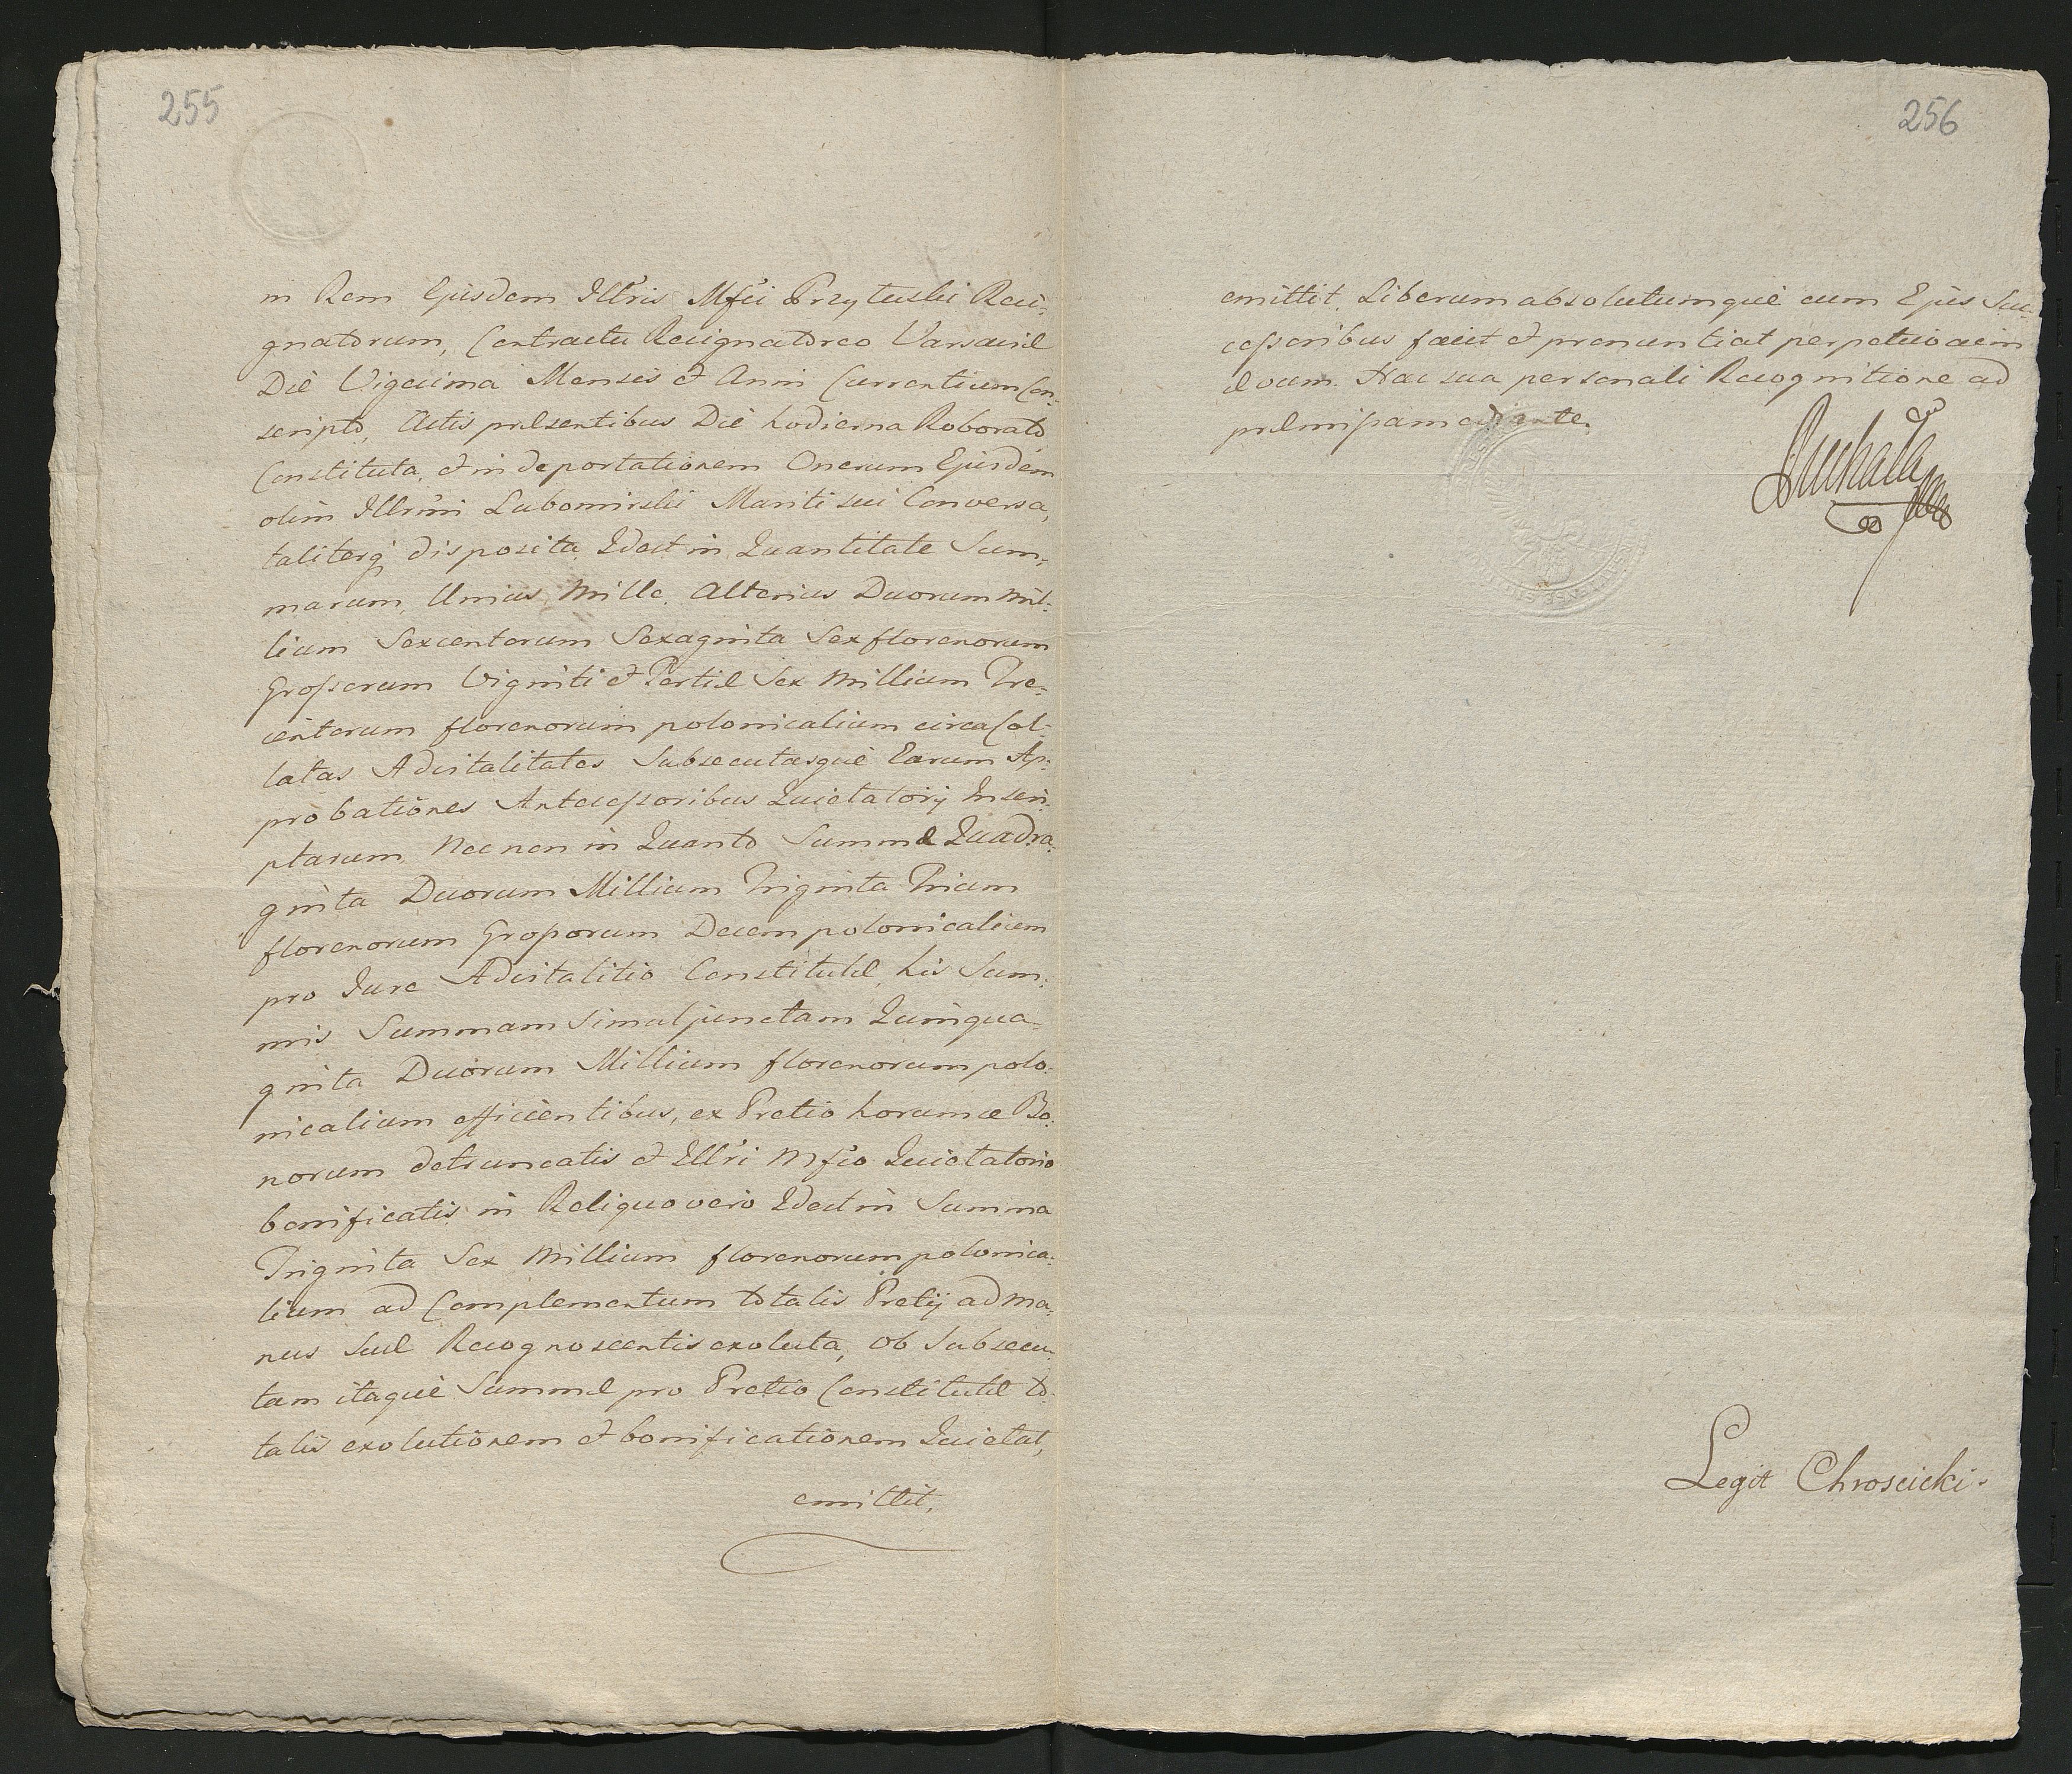 255
in Rem Ejusdem Illris Mfci Przyłuski Resi-
gnatorum, Contractu Resignatoreo Varsaviæ
Die Vigesima Mensis et Anni Currentium Con-
scripto, Actis præsentibus Die hodierna Roborato
Constituta, et in deportationem Onerum Ejusdem
olim Illrmi Lubomirski Mariti sui Conversa,
taliterq disposita. Idest in Quantitate Sum-
marum, Unius Mille, Alterius Duorum Mil-
lium Sexcentorum Sexaginta Sex florenorum
Grossorum Viginti et Tertiæ Sex Millium Tre-
centorum florenorum polonicalium circa Col-
latas Advitalitates Subsecutasque Earum Ap-
probationes Antecessoribus Quietatorij Inscri-
ptarum, Nec non in Quanto Summæ Quadra-
ginta Duorum Millium Triginta Trium
florenorum Grossorum Decem polonicalium
pro Jure Advitalitio Constitutæ, his Sum-
mis Summam Simul junctam Quinqua-
ginta Duorum Millium florenorum polo-
nicalium efficientibus, ex Pretio horumce Bo-
norum detruncatis et Illri Mfco Quietatorio
bonificatis, in Reliquo vero Idest in Summa
Triginta Sex Millium florenorum polonica-
lium ad Complementum totalis Pretij ad ma-
nus Suæ Recognoscentis exoluta, ob Subsecu-
tam itaque Summæ pro Pretio Constitutæ to-
talis exolutionem et bonificationem Quietat,
emittit,
256
emittit, Liberum absolutumque cum Ejus Suc-
cessoribus facit et pronuntiat perpetuo æm
ævum. Hac sua personali Recognitione ad
præmissa mediante.
Legit Chroscicki.